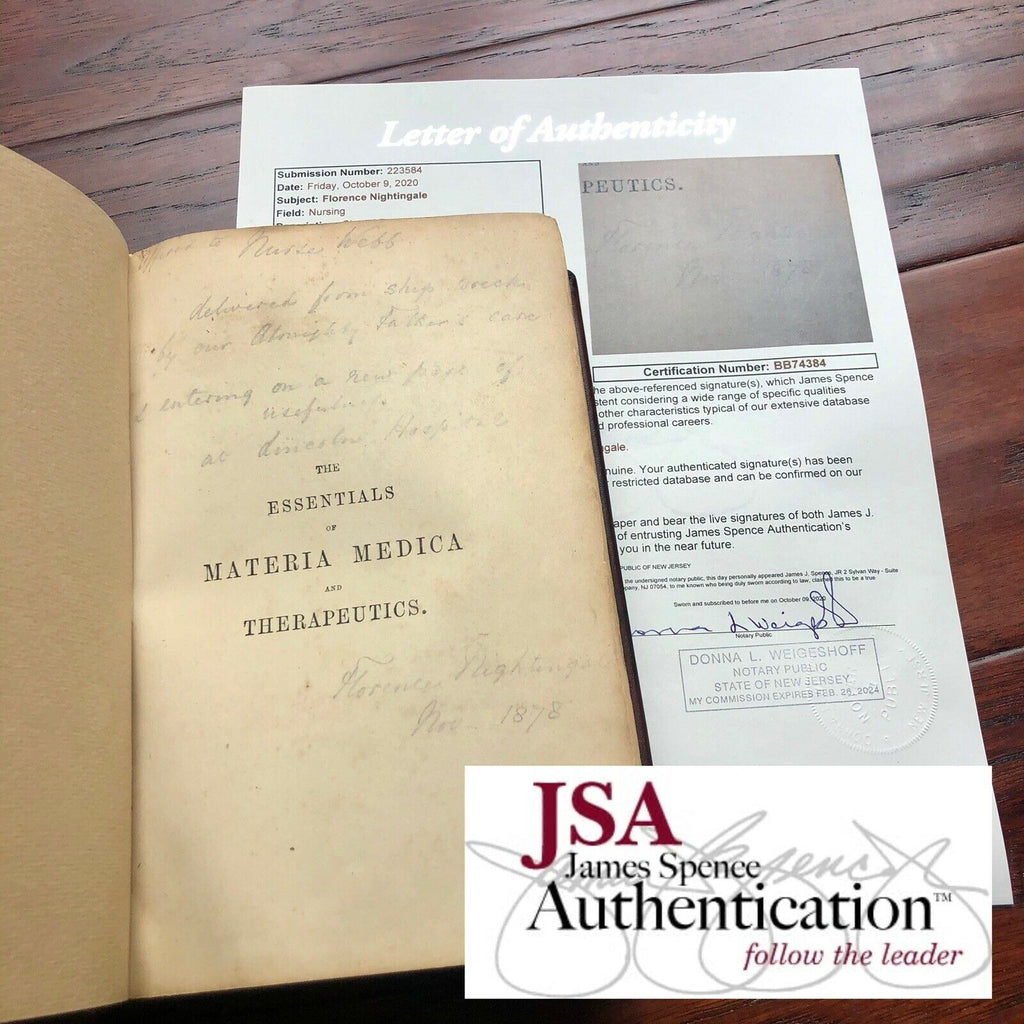 Letter of Authenticity
Submission Number: 223584
Date: Friday, October 9, 2020
Subject: Florence Nightingale
Field: Nursing
PEUTICS.
1878
Certification Number: BB74384
he above-referenced signature(s), which James Spence
stent considering a wide range of specific qualities
other characteristics typical of our extensive database
d professional careers.
gale.
nuine. Your authenticated signature(s) has been
restricted database and can be confirmed on our
aper and bear the live signatures of both James J.
of entrusting James Spence Authentication's
you in the near future.
PUBLIC OF NEW JERSEY
the undersigned notary public, this day personally appeared James J. Spence, JR 2 Sylvan Way - Suite
pany, NJ 07054, to me known who being duly sworn according to law, claimed this to be a true
Sworn and subscribed to before me on October 09, 2020
Notary Public
DONNA L. WEIGESHOFF
NOTARY PUBLIC
STATE OF NEW JERSEY
MY COMMISSION EXPIRES FEB. 26, 2024
to Nurse Webb
delivered from ship wreck
by our Almighty Father's care
& entering on a new page of
usefulness
at Lincoln Hospital
THE
ESSENTIALS
OF
MATERIA MEDICA
AND
THERAPEUTICS.
Florence Nightingale
Nov. 1878
JSA
James Spence
Authentication™
follow the leader